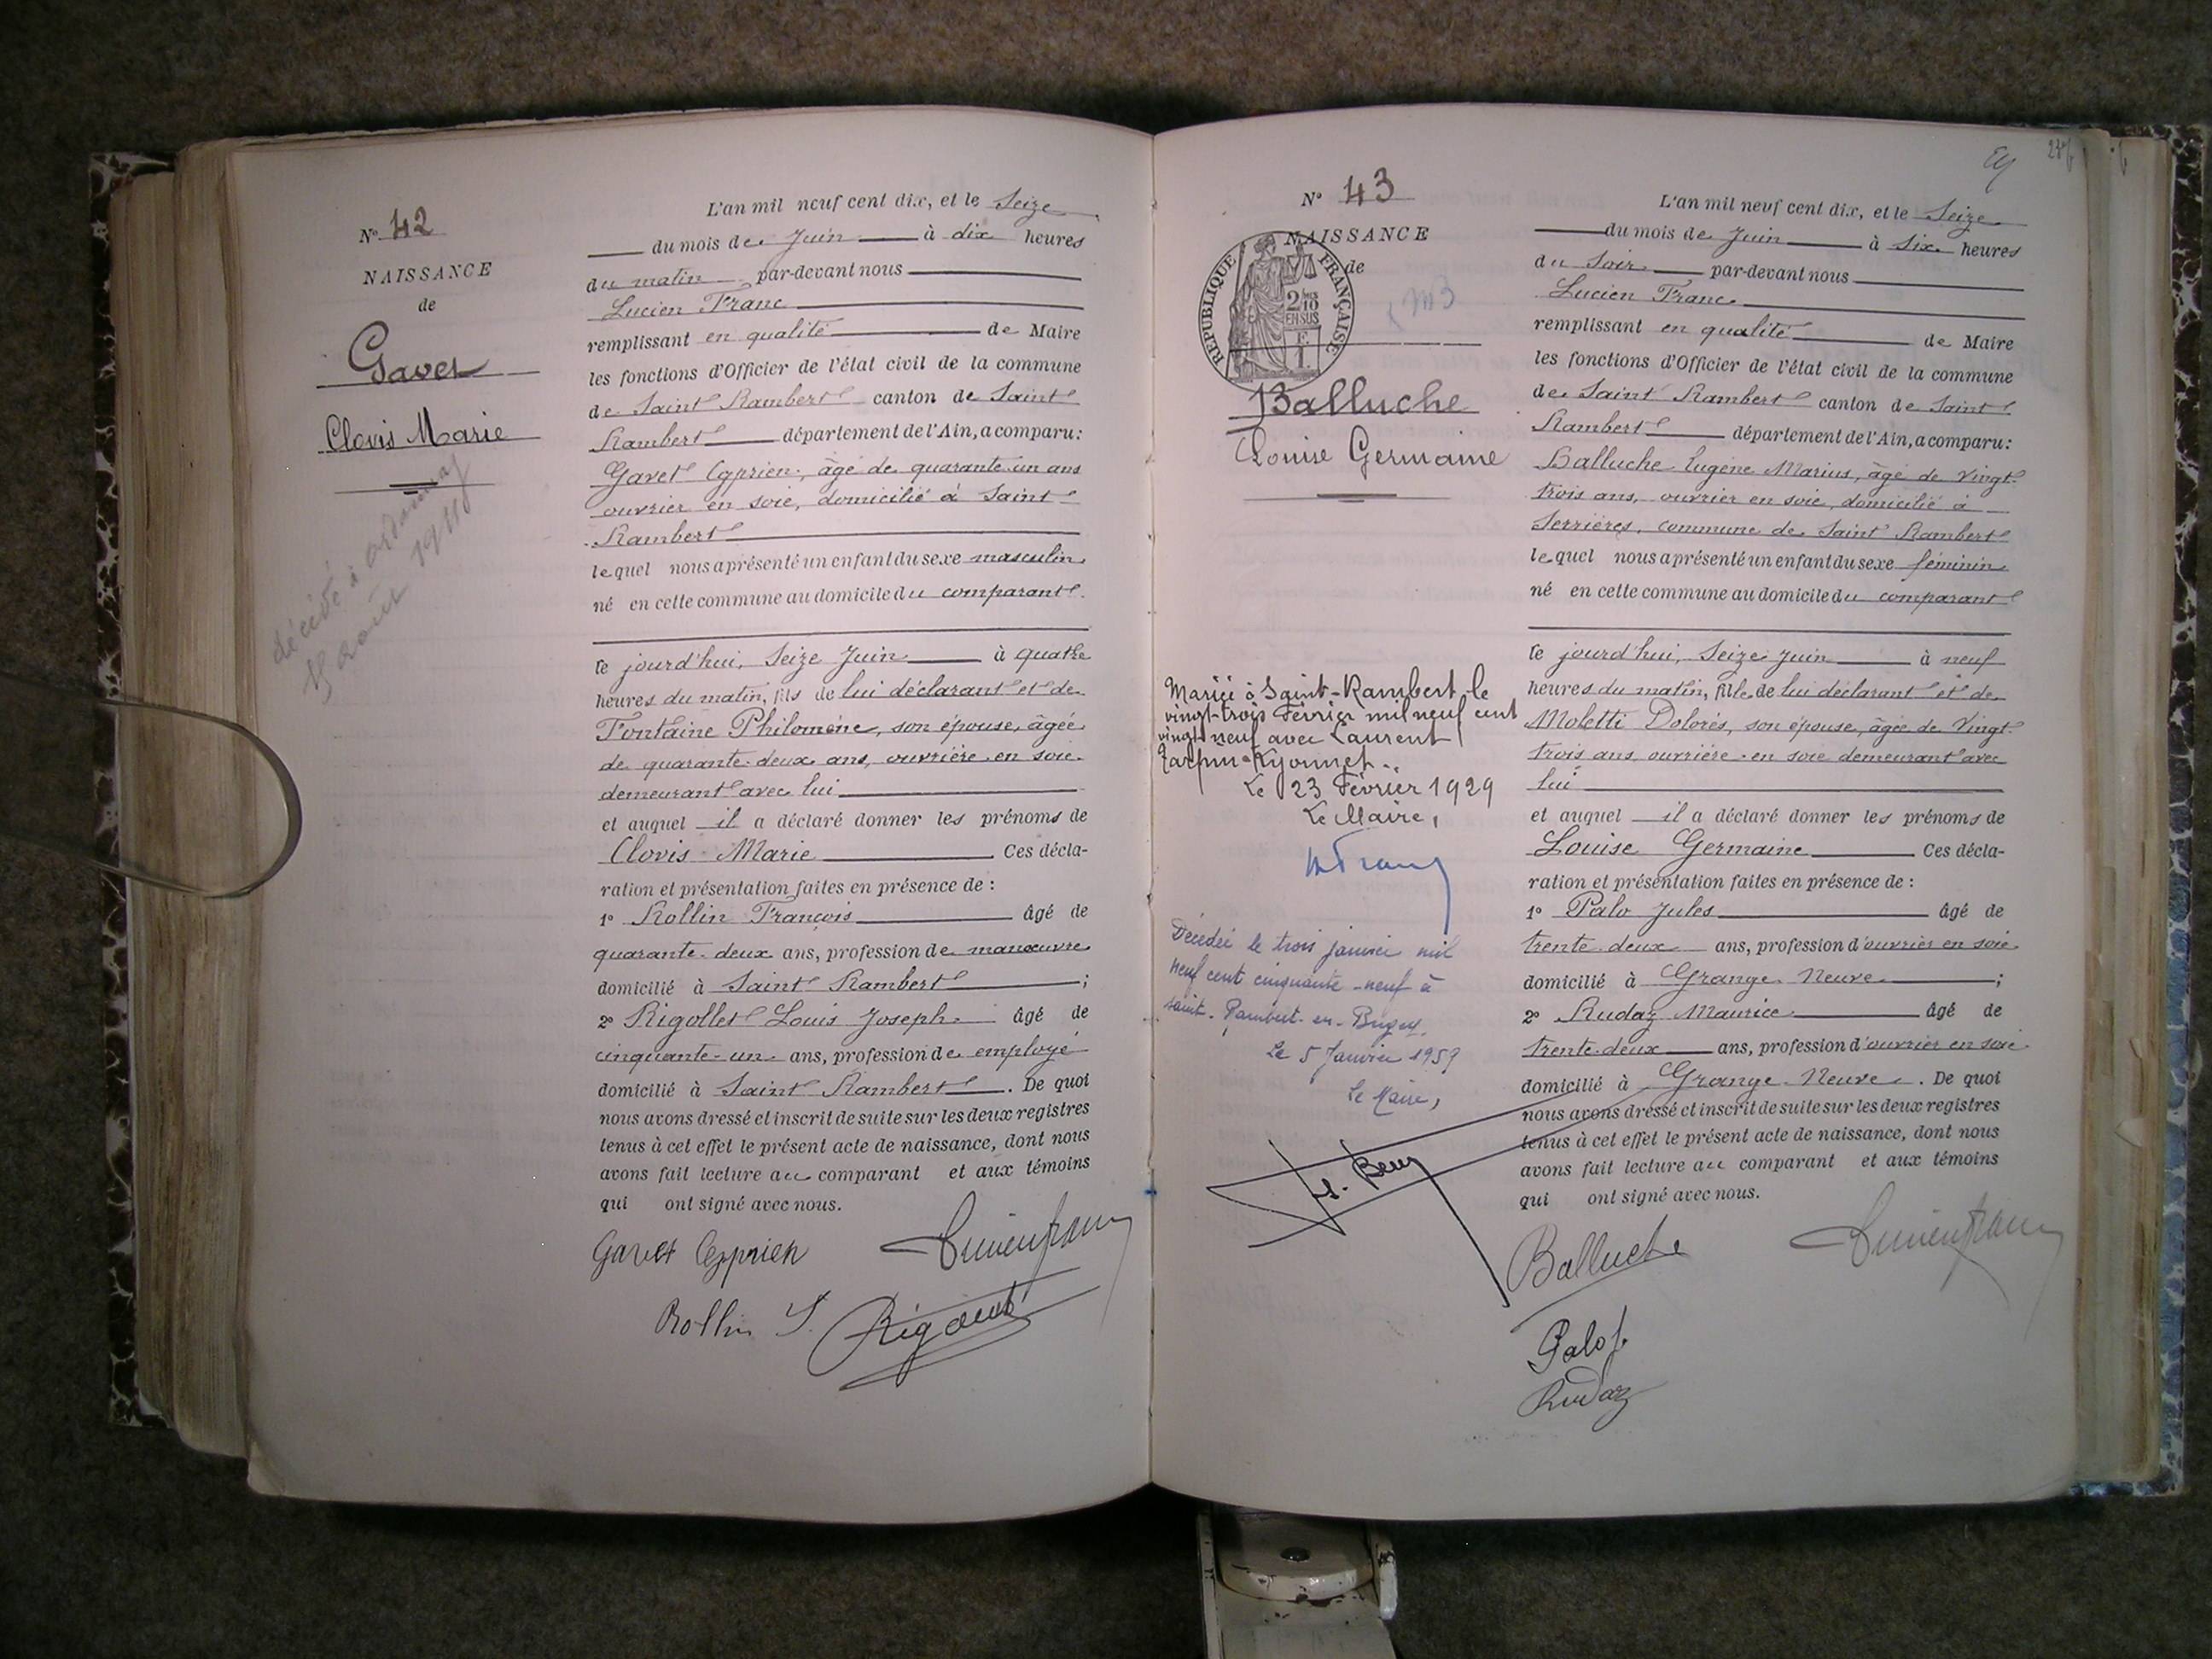 N° 42
NAISSANCE
de
Gavet
Clovis Marie
décédé à
août
L'an mil neuf cent dix, et le Seize
du mois de Juin à dix heures
du matin par-devant nous
Lucien Franc
remplissant en qualité de Maire
les fonctions d'Officier de l'état civil de la commune
de Saint Rambert canton de Saint
Rambert département de l'Ain, a comparu:
Gavet Cyprien, âgé de quarante un ans
ouvrier en soie, domicilié à Saint
Rambert
lequel nous a présenté un enfant du sexe masculin
né en cette commune au domicile du comparant.
ce jourd'hui, Seize Juin à quatre
heures du matin, fils de lui déclarant et de
Fontaine Philomène, son épouse, âgée
de quarante-deux ans, ouvrière en soie
demeurant avec lui
et auquel il a déclaré donner les prénoms de
Clovis Marie Ces décla-
ration et présentation faites en présence de :
1° Rollin François âgé de
quarante-deux ans, profession de manœuvre
domicilié à Saint Rambert ;
2° Rigollet Louis Joseph âgé de
cinquante-un ans, profession de employé
domicilié à Saint Rambert . De quoi
nous avons dressé et inscrit de suite sur les deux registres
tenus à cet effet le présent acte de naissance, dont nous
avons fait lecture au comparant et aux témoins
qui ont signé avec nous.
Gavet Cyprien Lucien Franc
Rollin
N° 43
NAISSANCE
de
RÉPUBLIQUE FRANÇAISE
2/10
EN SUS
Balluche
Louise Germaine
Mariée à Saint-Rambert le
vingt-trois Février mil neuf cent
vingt neuf avec Laurent
Le 23 Février 1929
Le Maire,
Décédée le trois janvier mil
neuf cent cinquante-neuf à
Saint-Rambert-en-Bugey.
Le 5 Janvier 1959
Le Maire,
L'an mil neuf cent dix, et le Seize
du mois de Juin à Six heures
du Soir par-devant nous
Lucien Franc
remplissant en qualité de Maire
les fonctions d'Officier de l'état civil de la commune
de Saint Rambert canton de Saint
Rambert département de l'Ain, a comparu:
Balluche Eugène Marius, âgé de vingt
trois ans, ouvrier en soie, domicilié à
Serrières, commune de Saint Rambert
lequel nous a présenté un enfant du sexe féminin
né en cette commune au domicile du comparant
ce jourd'hui, Seize Juin à neuf
heures du matin, fille de lui déclarant et de
Moletti Dolorés, son épouse, âgée de Vingt
trois ans, ouvrière en soie demeurant avec
lui
et auquel il a déclaré donner les prénoms de
Louise Germaine Ces décla-
ration et présentation faites en présence de :
1° Palo Jules âgé de
trente deux ans, profession d'ouvrier en soie
domicilié à Grange Neuve ;
2° Rudaz Maurice âgé de
trente-deux ans, profession d'ouvrier en soie
domicilié à Grange Neuve . De quoi
nous avons dressé et inscrit de suite sur les deux registres
tenus à cet effet le présent acte de naissance, dont nous
avons fait lecture au comparant et aux témoins
qui ont signé avec nous.
Balluche Lucien Franc
Palo J.
Rudaz